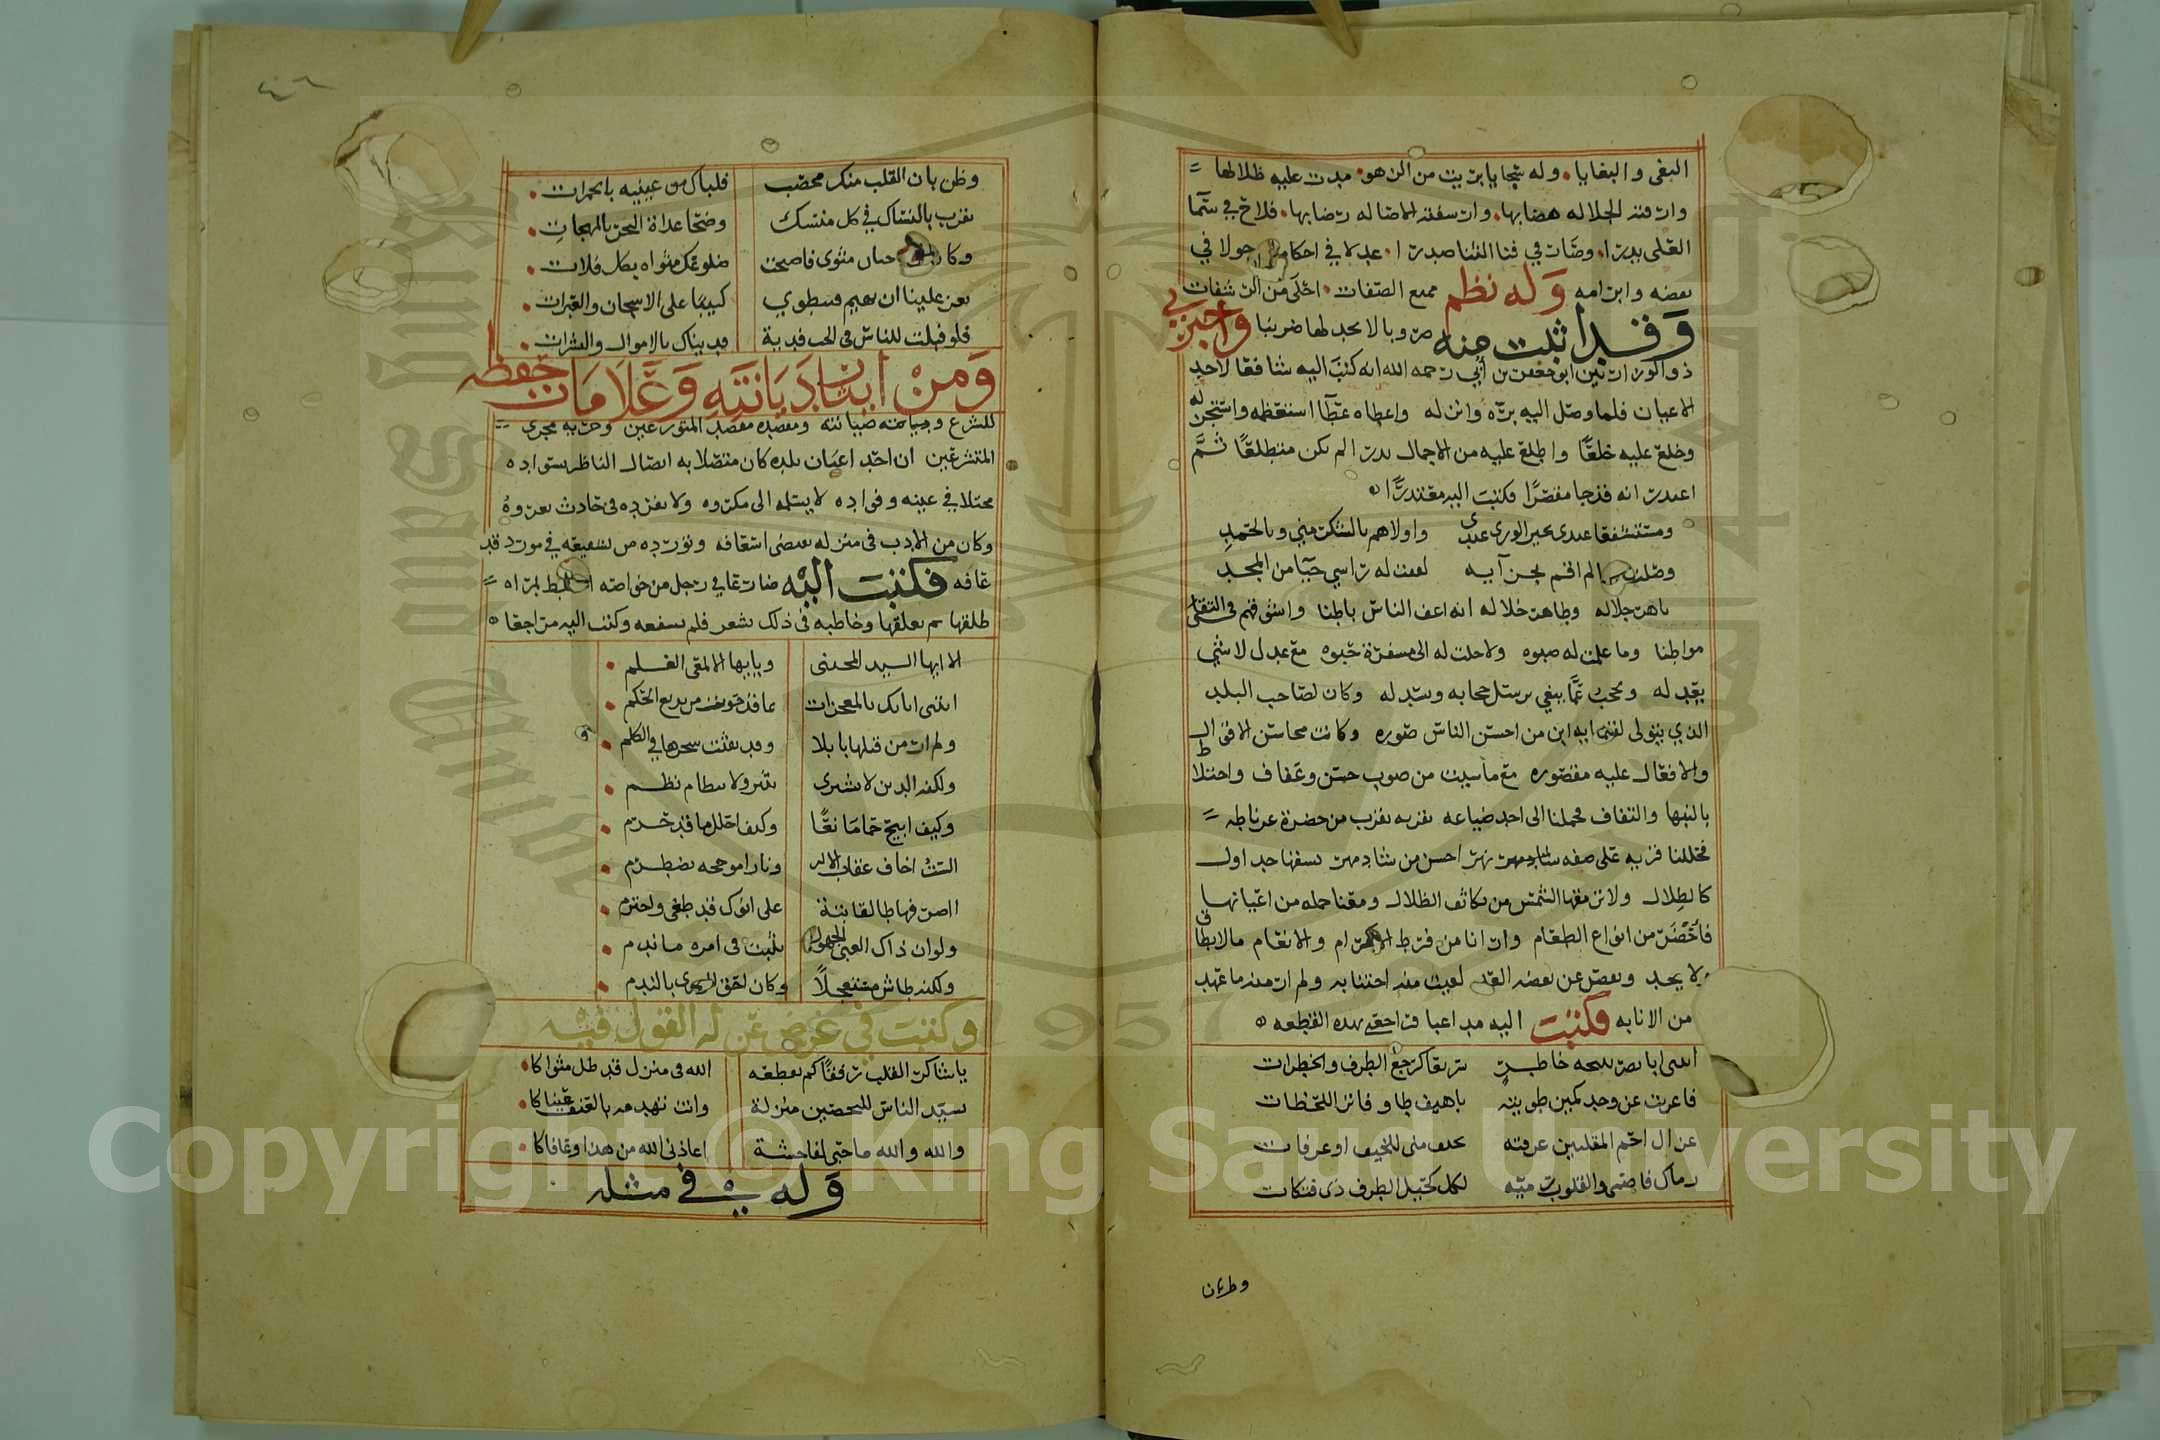 التقى والبقايا. وله سجايا برئت من الزهو. مدت عليه ظلالها
وارقته الجلاله هضابها. وارشفته الاصاله رضابها. فلاح في سما
العلى بدرا. وصار في فنا السنا صدرا. عدلا في احكامه جزلا في
نقضه وابرامه وله نظم ممتع الصفات. احلى من الرشفات
وقد اثبت منه ضروبا لا يجد لها ضريبا واخبرني
ذو الوزارتين ابو جعفر بن ابي رحمه الله انه كتب اليه شافعا لاحد
الاعيان فلما وصل اليه بره وانزله واعطاه عطآ استعظمه واستجزله
وخلع عليه خلعًا واطلع عليه من الاجمال بدرا لم يكن متطلعًا ثمَّ
اعتذر انه قد جا مقصرًا فكتب اليه معتذرًا
ومستشفعا عندى بخير الورى عندى
واولاهم بالشكر مني وبالحمدِ
وصلت لم اقم بجزآيه
لففت له راسي حيآ من المجد
باهر جلاله وطاهر خلاله انه اعف الناس باطنا واشرفهم في التقى
مواطنا وما علمت له صبوه ولا حلت له الى مستنكرة حبوه مع عدل لا شي
يعدله وتحجب عمَّا يبغي يرسل حجابه ويسدله وكان لصاحب البلد
الذي يتولى القضا به ابن من احسن الناس صوره وكانت محاسن الاقوال
والافعال عليه مقصوره مع ما شيت من صوت حسن وعفاف واختلاط
بالنبها والتفاف فحملنا الى احدى ضياعه بقريه بقرب من حضرة غرناطه
فحللنا قريه على ضفه نهر احسن من شاذمهر تشقها جداول
كالطلال ولا ترمقها الشمس من تكاثف الظلال ومعنا جمله من اعيانها
فاحضر من انواع الطعام وارانا من فرط الاكرام والانعام ما لا يطاق
ولا يحد ويقصر عن بعضه العد لقيت منه اجتنابه ولم ار منه ما عهد
من الانابه فكتبت اليه مداعبا فراجعني بهذه القطعه
اتتنى ابا نصر نتيجه خاطر
سريعا كرجع الطرف والخطرات
فاعربت عن وجد كمين طويته
باهيف طاو فاتر اللحظات
غزال احم المقلتين عرفته
بخيف منى للخيف او عرفات
رماك فاصمى والقلوب رميه
لكل كحيل الطرف ذى فتكات
وظن بان
٤٦
وظن بان القلب منك محصب
فلباك من عينيه بالجمرات
تقرب بالنساك في كل منسك
وضحا غداة النحر بالمهجات
وكانت له جيان مثوى فاصبحت
ضلوعك مثواه بكل فلات
يعز علينا ان تهيم فتنطوي
كييبا على الاشجان والعبرات
فلو قبلت للناس في الحب فدية
فديناك بالاموال والبشرات
ومن ابيات ديانته وعلامات حفظه
للشرع وصيانته ومقصده مقصد المتورعين وجريه مجرى
المتشرعين ان احد اعيان بلده كان متصلا به اتصال الناظر بسواده
محتلا في عينه وفواده لا يسلمه الى مكروه ولا يفرده في حادث يعروه
وكان من الادب فى منزله تقتضى اسعافه ونورده من تشفيعه في مورد قد
عافه فكتبت اليه ضارعا في رجل من خواصه اختلط بمراه
طلقها ثم تعلقها وخاطبه فى ذلك بشعر فلم يسعفه وكتب اليه مراجعا
الا ايها السيد المجتبى
ويا ايها الالمعى العلم
اتتنى ابياتك بالمعجزات
بما قد حوت من بديع الحكم
ولم ار من قبلها بابلا
وقد نفثت سحرها في الكلم
ولكنه الدين لا يشترى
بنثر ولا بنظام نظم
وكيف ابيح حما مانعًا
وكيف احلل ما قد حرم
الست اخاف عقاب الاله
ونارا موججه تضطرم
ااصرفها طالقا بتة
على انوك قد طغى واجترم
ولو ان ذاك الغبى الجهول
يثبت فى امره ما ندم
ولكنه طاش مستعجلًا
وكان احق الورى بالندم
وكتبت في غرض عن له القول فيه
يا ساكن القلب رفقًا كم تقطعه
الله فى منزل قد ظل مثواكا
يشيد الناس للتحصين منزلة
وانت تهدمه بالعنف عيناكا
والله والله ما حبى لفاحشة
اعاذنى الله من هذا وعافاكا
وله في مثله